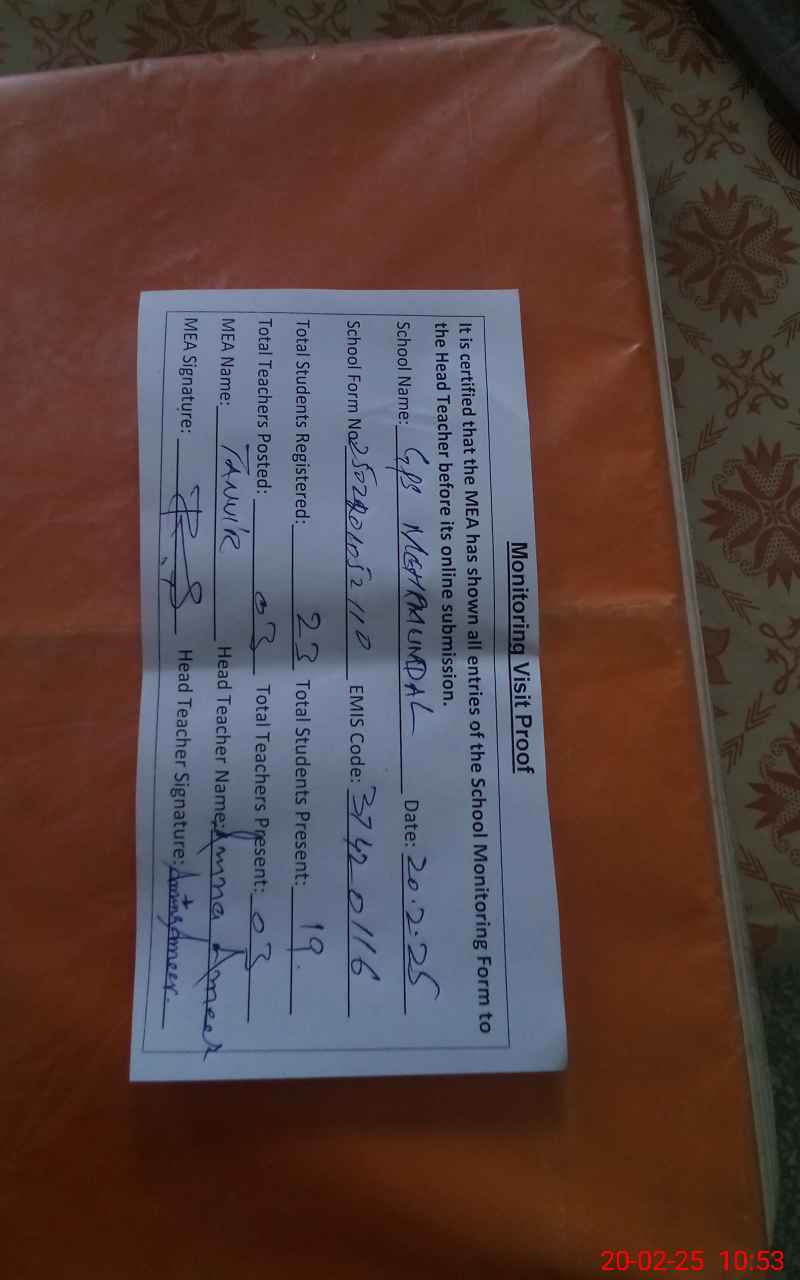 Monitoring Visit Proof
It is certified that the MEA has shown all entries of the School Monitoring Form to
the Head Teacher before its online submission.
School Name: GPS MOHAMUNDAL Date: 20.2.25
School Form No. EMIS Code: 37420116
Total Students Registered: 23 Total Students Present: 19.
Total Teachers Posted: 03 Total Teachers Present: 03
MEA Name: TANVIR Head Teacher Name: Amna Ameer
MEA Signature: Head Teacher Signature: Amna Ameer.
20-02-25 10:53